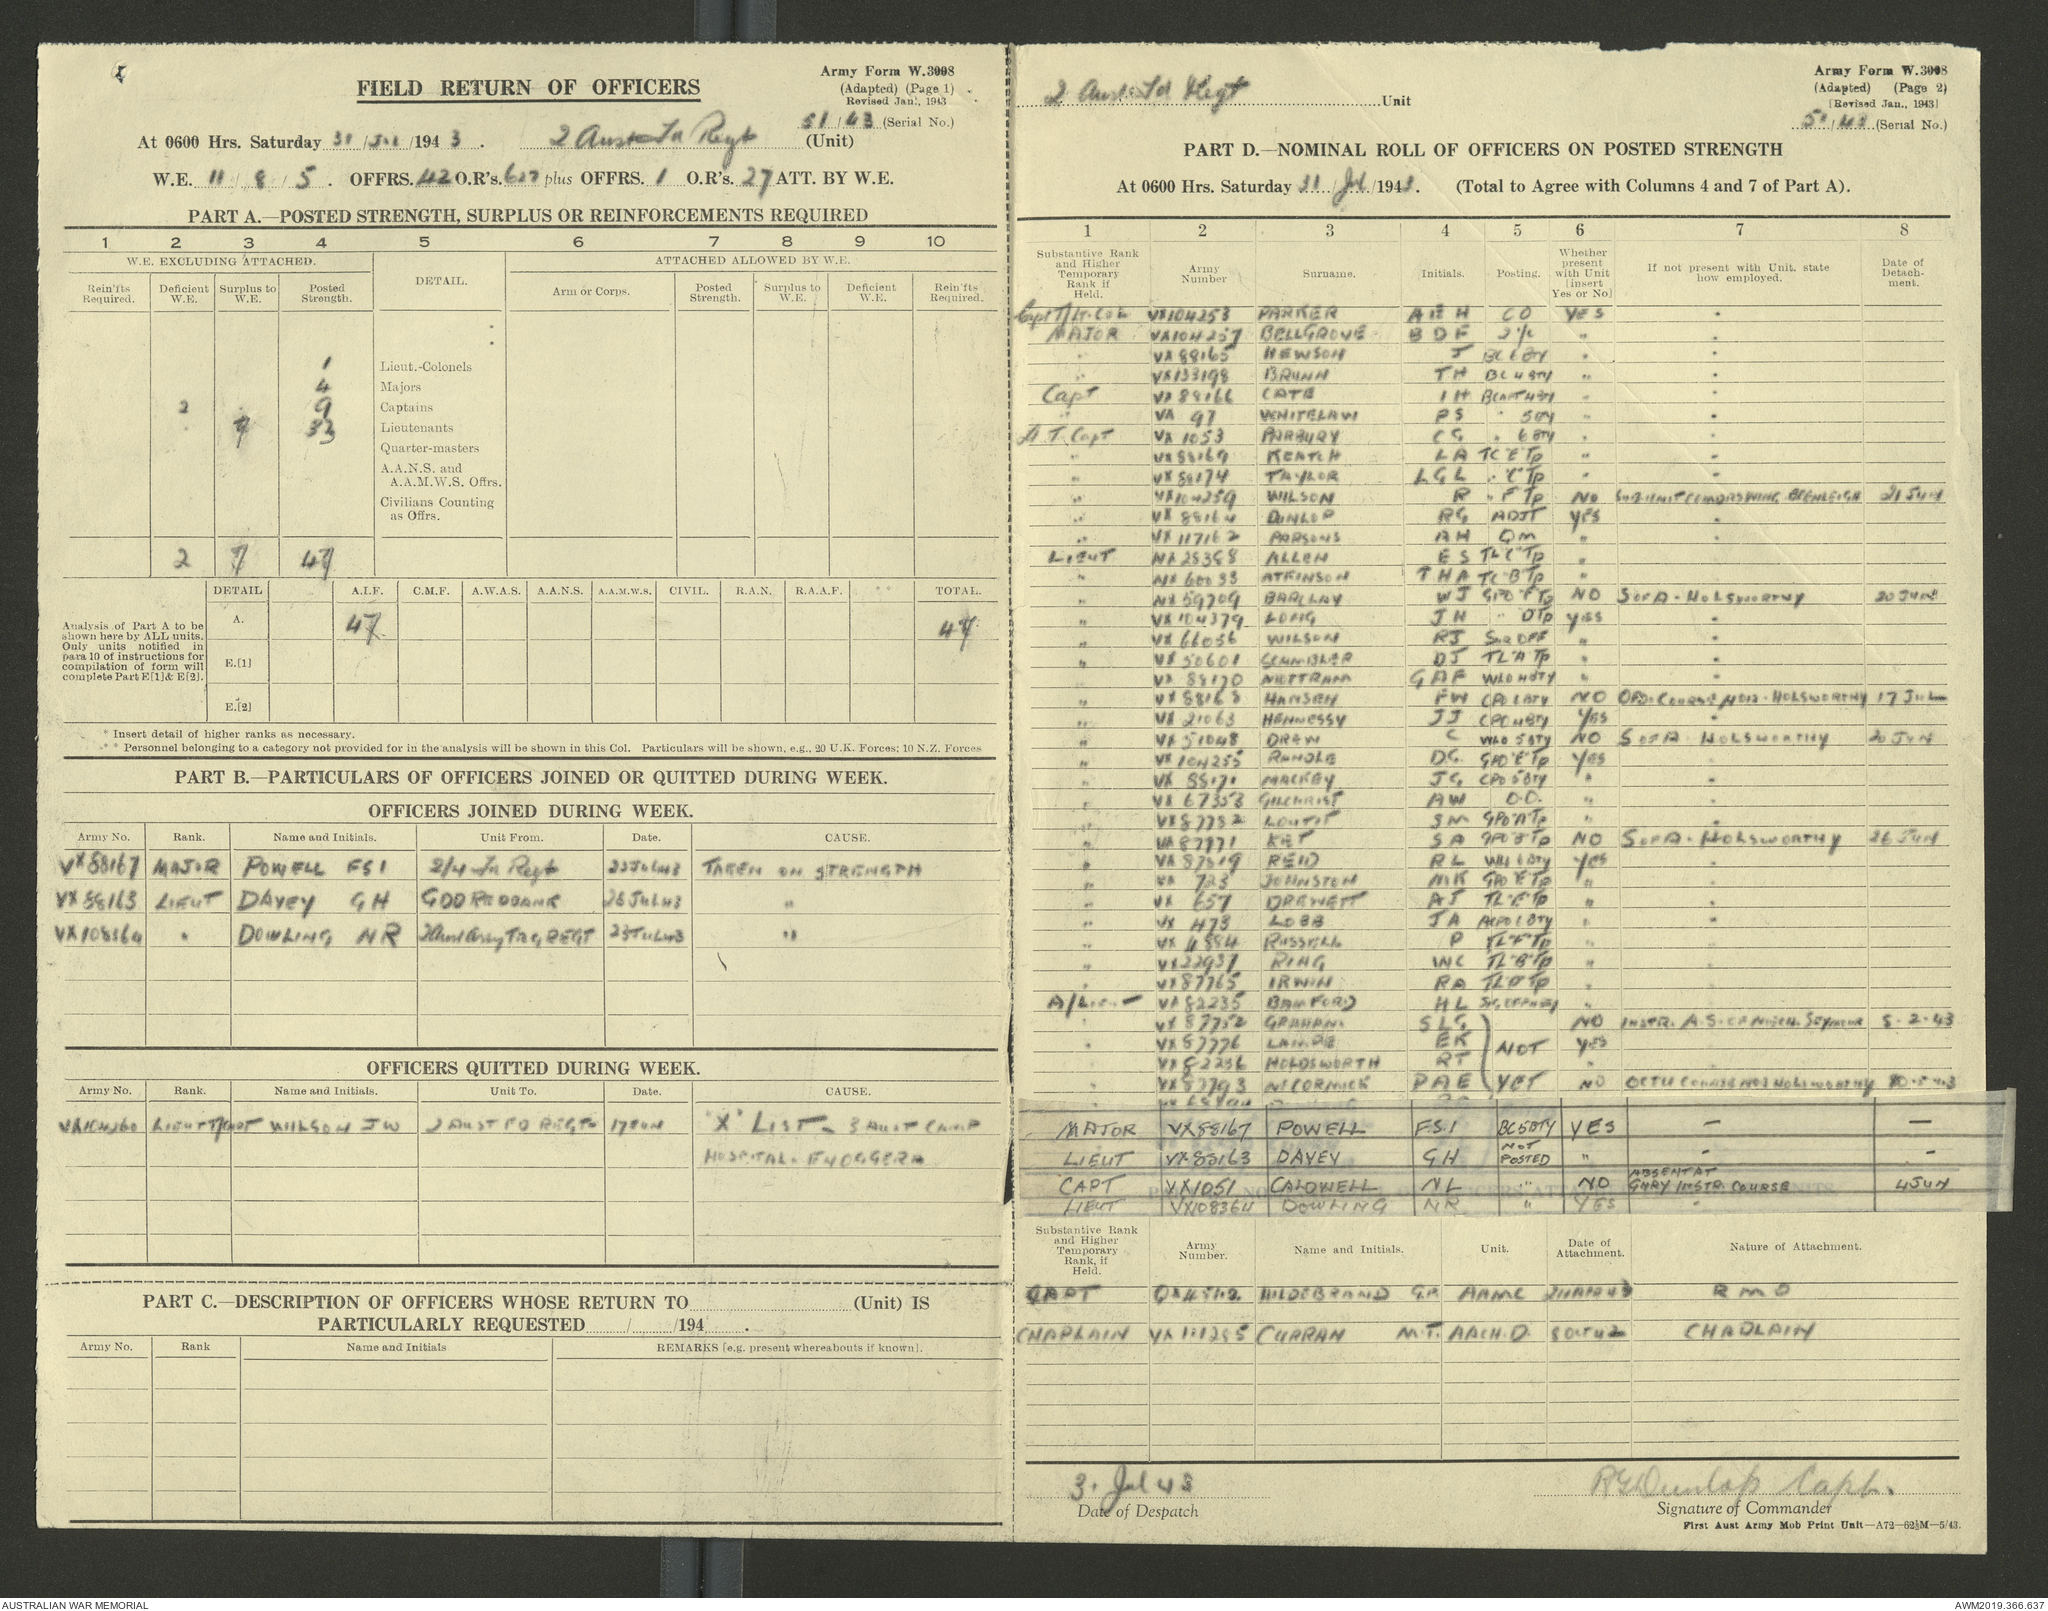 FIELD RETURN OF OFFICERS
Army Form W.3008
(Adapted) (Page 1)
Revised Jan., 1943
51/43 (Serial No.)
At 0600 Hrs. Saturday 31/Jul/1943. 2 Aust Fd Regt (Unit)
W.E. 11/8/5. OFFRS. 42 O.R's. 627 plus OFFRS. 1 O.R's. 27 ATT. BY W.E.
PART A.—POSTED STRENGTH, SURPLUS OR REINFORCEMENTS REQUIRED
1 2 3 4 5 6 7 8 9 10
W.E. EXCLUDING ATTACHED. DETAIL. ATTACHED ALLOWED BY W.E.
Rein'fts Required. Deficient W.E. Surplus to W.E. Posted Strength. Arm or Corps. Posted Strength. Surplus to W.E. Deficient W.E. Rein'fts Required.
1 Lieut.-Colonels
4 Majors
2 9 Captains
7 33 Lieutenants
Quarter-masters
A.A.N.S. and A.A.M.W.S. Offrs.
Civilians Counting as Offrs.
2 7 47
DETAIL A.I.F. C.M.F. A.W.A.S. A.A.N.S. A.A.M.W.S. CIVIL. R.A.N. R.A.A.F. TOTAL.
Analysis of Part A to be shown here by ALL units. Only units notified in para 10 of instructions for compilation of form will complete Part E[1] & E[2].
A. 47 47
E.[1]
E.[2]
* Insert detail of higher ranks as necessary.
** Personnel belonging to a category not provided for in the analysis will be shown in this Col. Particulars will be shown, e.g., 20 U.K. Forces; 10 N.Z. Forces
PART B.—PARTICULARS OF OFFICERS JOINED OR QUITTED DURING WEEK.
OFFICERS JOINED DURING WEEK.
Army No. Rank. Name and Initials. Unit From. Date. CAUSE.
VX88167 MAJOR POWELL FSI 2/4 Fd Regt 23 JUL 43 TAKEN ON STRENGTH
VX88163 LIEUT DAVEY GH GDD REDBANK 26 JUL 43 "
VX108364 " DOWLING NR 2 Aust Army TRG REGT 23 JUL 43 "
OFFICERS QUITTED DURING WEEK.
Army No. Rank. Name and Initials. Unit To. Date. CAUSE.
VX104260 LIEUT T/CAPT WILSON JW 2 AUST FD REGT 17 JUN "X" LIST - 3 AUST CAMP
HOSPITAL. ENOGGERA
PART C.—DESCRIPTION OF OFFICERS WHOSE RETURN TO (Unit) IS
PARTICULARLY REQUESTED / /194 .
Army No. Rank Name and Initials REMARKS [e.g. present whereabouts if known].
2 Aust Fd Regt Unit
Army Form W.3008
(Adapted) (Page 2)
[Revised Jan., 1943]
51/43 (Serial No.)
PART D.—NOMINAL ROLL OF OFFICERS ON POSTED STRENGTH
At 0600 Hrs. Saturday 31/Jul/1943. (Total to Agree with Columns 4 and 7 of Part A).
1 2 3 4 5 6 7 8
Substantive Rank and Higher Temporary Rank if Held. Army Number Surname. Initials. Posting. Whether present with Unit [insert Yes or No] If not present with Unit, state how employed. Date of Detachment.
Capt T/Lt. Col VX104253 PARKER AEH CO YES "
MAJOR VX104257 BELLGROVE BDF 2 i/c " "
" VX88165 HEWSON J BC 6 BTY " "
" VX133198 BRUNN TH BC 4 BTY " "
Capt VX88166 CATE IH BCAPT 4 BTY " "
" VX 97 WHITELAW PS " 5 BTY " "
Lt. T. Capt VX 1053 PARBURY CG " 6 BTY " "
" VX88169 KEATCH LA TC "E" Tp " "
" VX88174 TAYLOR LGL " "C" Tp " "
" VX104259 WILSON R " F Tp NO SUB UNIT COMDRS WING. BEENLEIGH 21 JUN
" VX88164 DUNLOP RG ADJT YES "
" VX117162 PARSONS AH QM " "
LIEUT NX25358 ALLEN ES TL "C" Tp " "
" NX60033 ATKINSON THA TC "B" Tp "
" NX59709 BARCLAY WJ GPO "F" Tp NO S of A - HOLSWORTHY 20 JUN
" VX104379 LONG JH " D Tp YES "
" VX66056 WILSON RJ SVR OFF " "
" VX50601 SCHMIDLER DJ TL "A" Tp " "
" VX88170 NOTTRAM GAF WLO 4 BTY " "
" VX88168 HANSEN FW CPO 6 BTY NO HOLSWORTHY 17 JUL
" VX21063 HENNESSY JJ CPO 4 BTY YES "
" VX51048 DRAW C WLO 5 BTY NO S of A - HOLSWORTHY 20 JUN
" VX104255 RANDLE DG GPO "E" Tp YES
" VX88171 MACKEY JG CPO 5 BTY "
" VX67353 GILCHRIST AW O.O. " "
" VX87782 LOUTIT SM GPO "A" Tp " "
" VX87771 KET SA GPO "B" Tp NO S of A - HOLSWORTHY 26 JUN
" VX87819 REID RL WLO 6 BTY YES "
" VX 723 JOHNSTON MK GPO "E" Tp "
" VX 657 DREWETT AJ TL "E" Tp "
" VX 473 LOBB JA ACPO 6 BTY "
" VX4884 RUSSELL P TL "F" Tp "
" VX22937 RING WC TL "B" Tp " "
" VX87765 IRWIN RA TL "D" Tp
A/Lieut VX82235 BAMFORD HL "
VX87752 GRAHAM SLG NO INSTR. A.S. of MECH. SEYMOUR 5-2-43
" VX87776 LAMPE EK NOT YES
" VX82236 HOLDSWORTH RT "
" VX87793 McCORMICK PAE YET NO OCTU COURSE HOLSWORTHY
MAJOR VX88167 POWELL FSI BC 5 BTY YES — —
LIEUT VX88163 DAVEY GH NOT POSTED " - -
CAPT VX1051 CALDWELL NL " NO ABSENT AT GNRY INSTR. COURSE 4 JUN
LIEUT VX108364 DOWLING NR " YES "
Substantive Rank and Higher Temporary Rank, if Held. Army Number. Name and Initials. Unit. Date of Attachment. Nature of Attachment.
CAPT HILDEBRAND G.P. AAMC RMO
CHAPLAIN VX111285 CURRAN M.T. AACH.D. 8 Oct 42 CHAPLAIN
31 Jul 43
Date of Despatch
RGDunlop Capt.
Signature of Commander
First Aust Army Mob Print Unit—A72—62½M—5/43.
AUSTRALIAN WAR MEMORIAL
AWM2019.366.637